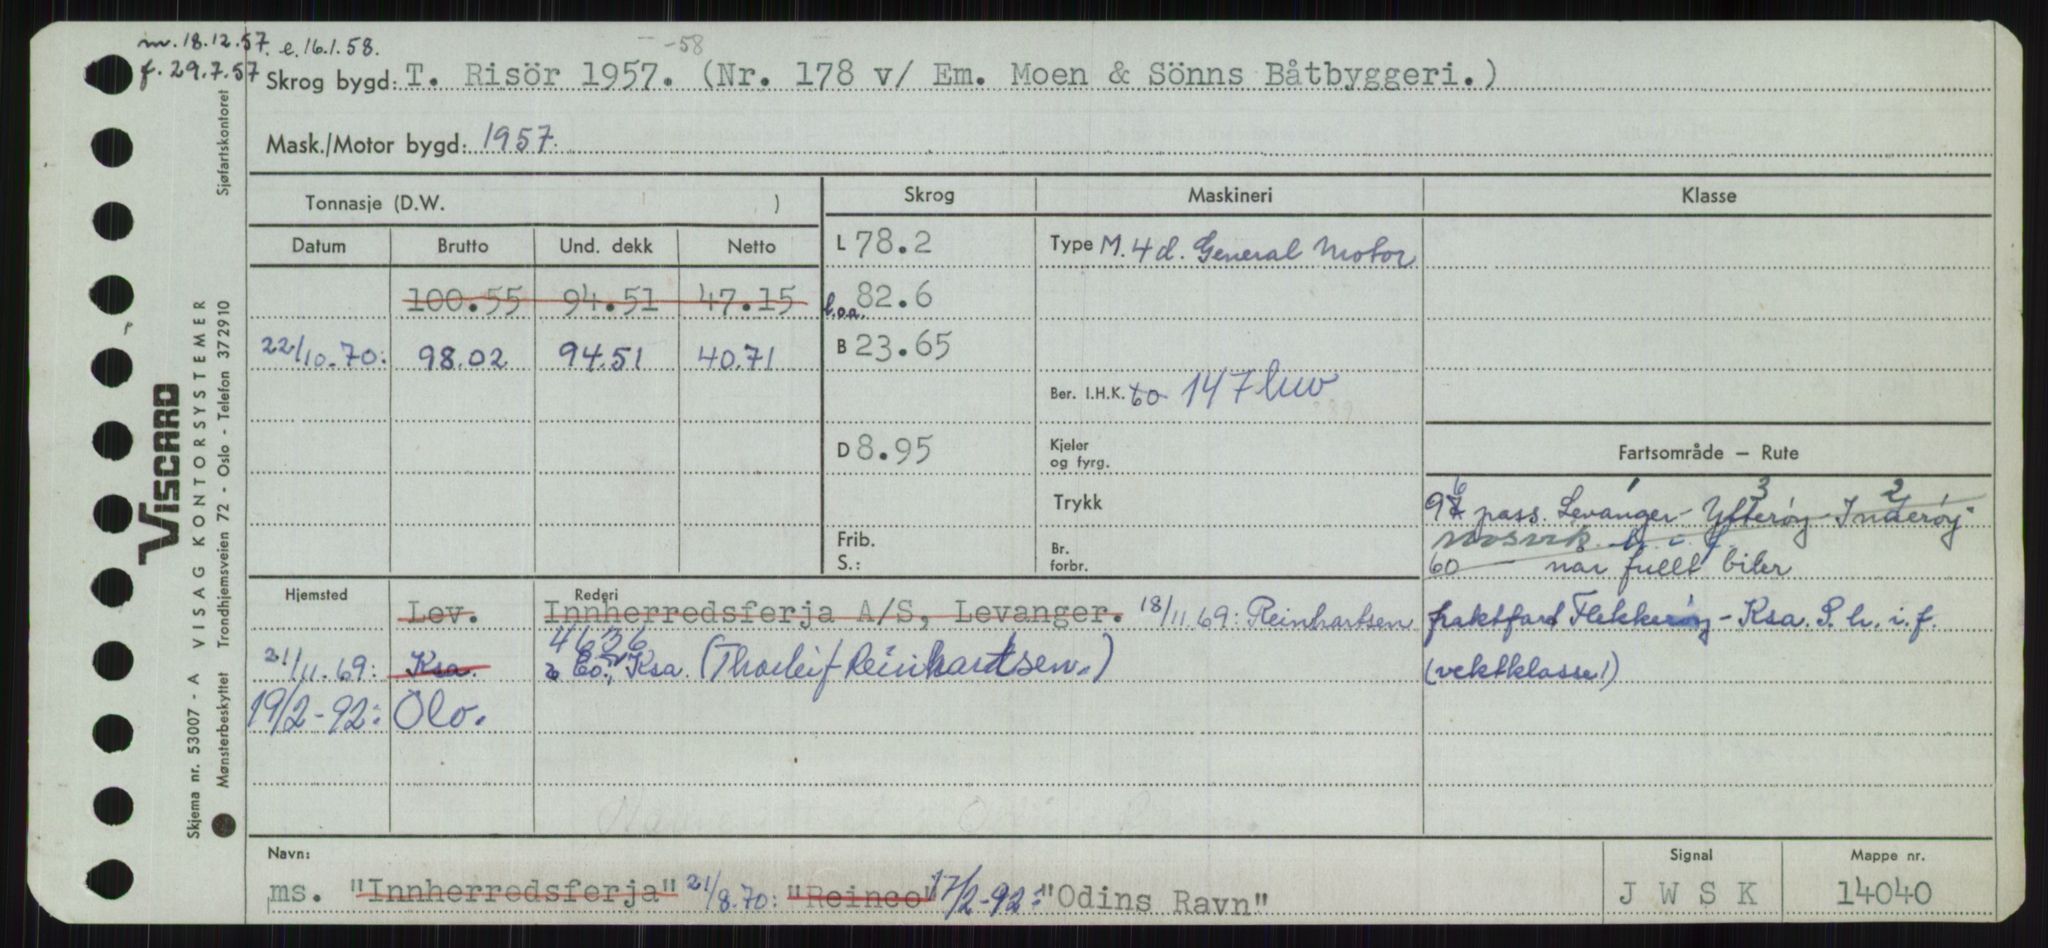 m. 18.12.57. e. 16.1.58.
-58
f. 29.7.57
Skrog bygd: T. Risör 1957. (Nr. 178 v/ Em. Moen & Sönns Båtbyggeri.)
Mask./Motor bygd: 1957.
Tonnasje (D.W. )
Skrog Maskineri Klasse
Datum Brutto Und. dekk Netto
L 78.2 Type M. 4 d. General Motor
100.55 94.51 47.15 l.o.a. 82.6
22/10.70: 98.02 94.51 40.71 B 23.65
Ber. I.H.K. 60 147 kw
D 8.95 Kjeler og fyrg.
Fartsområde – Rute
Trykk
97 6 pass. Levanger - Ytterøy - Inderøy -
1 3 2
Mosvik h. i. f.
60 når fullt biler
Frib.
S.:
Br. forbr.
Hjemsted Rederi
Lev. Innherredsferja A/S, Levanger. 18/11 69: Reinhartsen
fraktfart Flekkerøy - Ksa. S. h. i. f.
4636
21/11.69: Ksa. & Co., Ksa. (Thorleif Reinhartsen.)
(vektklasse!)
19/2-92: Olo.
Navn:
Signal Mappe nr.
ms. "Innherredsferja" 21/8.70: "Reinco" 17/2-92: "Odins Ravn"
J W S K 14040
VISCARD
VISAG KONTORSYSTEMER
Skjema nr. 53007 - A
Mønsterbeskyttet Trondhjemsveien 72 - Oslo - Telefon 372910
Sjøfartskontoret